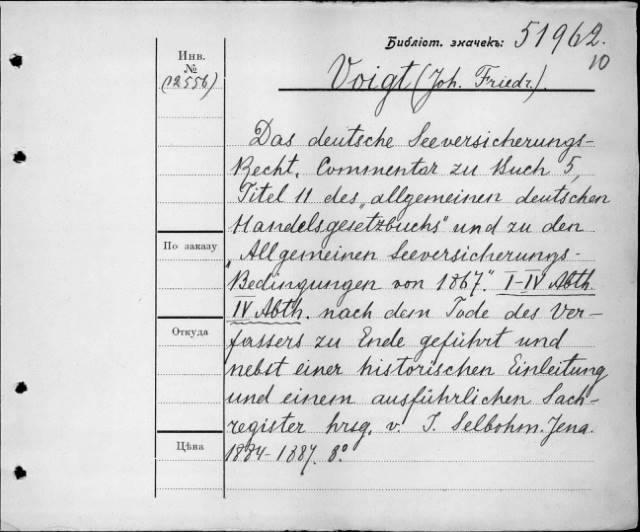 Библіот. значекъ: 51962.
10
Инв.
№
(12556)
Voigt (Joh. Friedr.).
Das deutsche Seeversicherungs-
Recht. Commentar zu Buch 5,
Titel 11 des „allgemeinen deutschen
Handelsgesetzbuchs" und zu den
По заказу
„Allgemeinen Seeversicherungs-
Bedingungen von 1867". I-IV Abth.
IV Abth. nach dem Tode des Ver-
Откуда
fassers zu Ende geführt und
nebst einer historischen Einleitung
und einem ausführlichen Sach-
register hrsg. v. J. Selbohm. Jena.
Цѣна
1884-1887. 8°